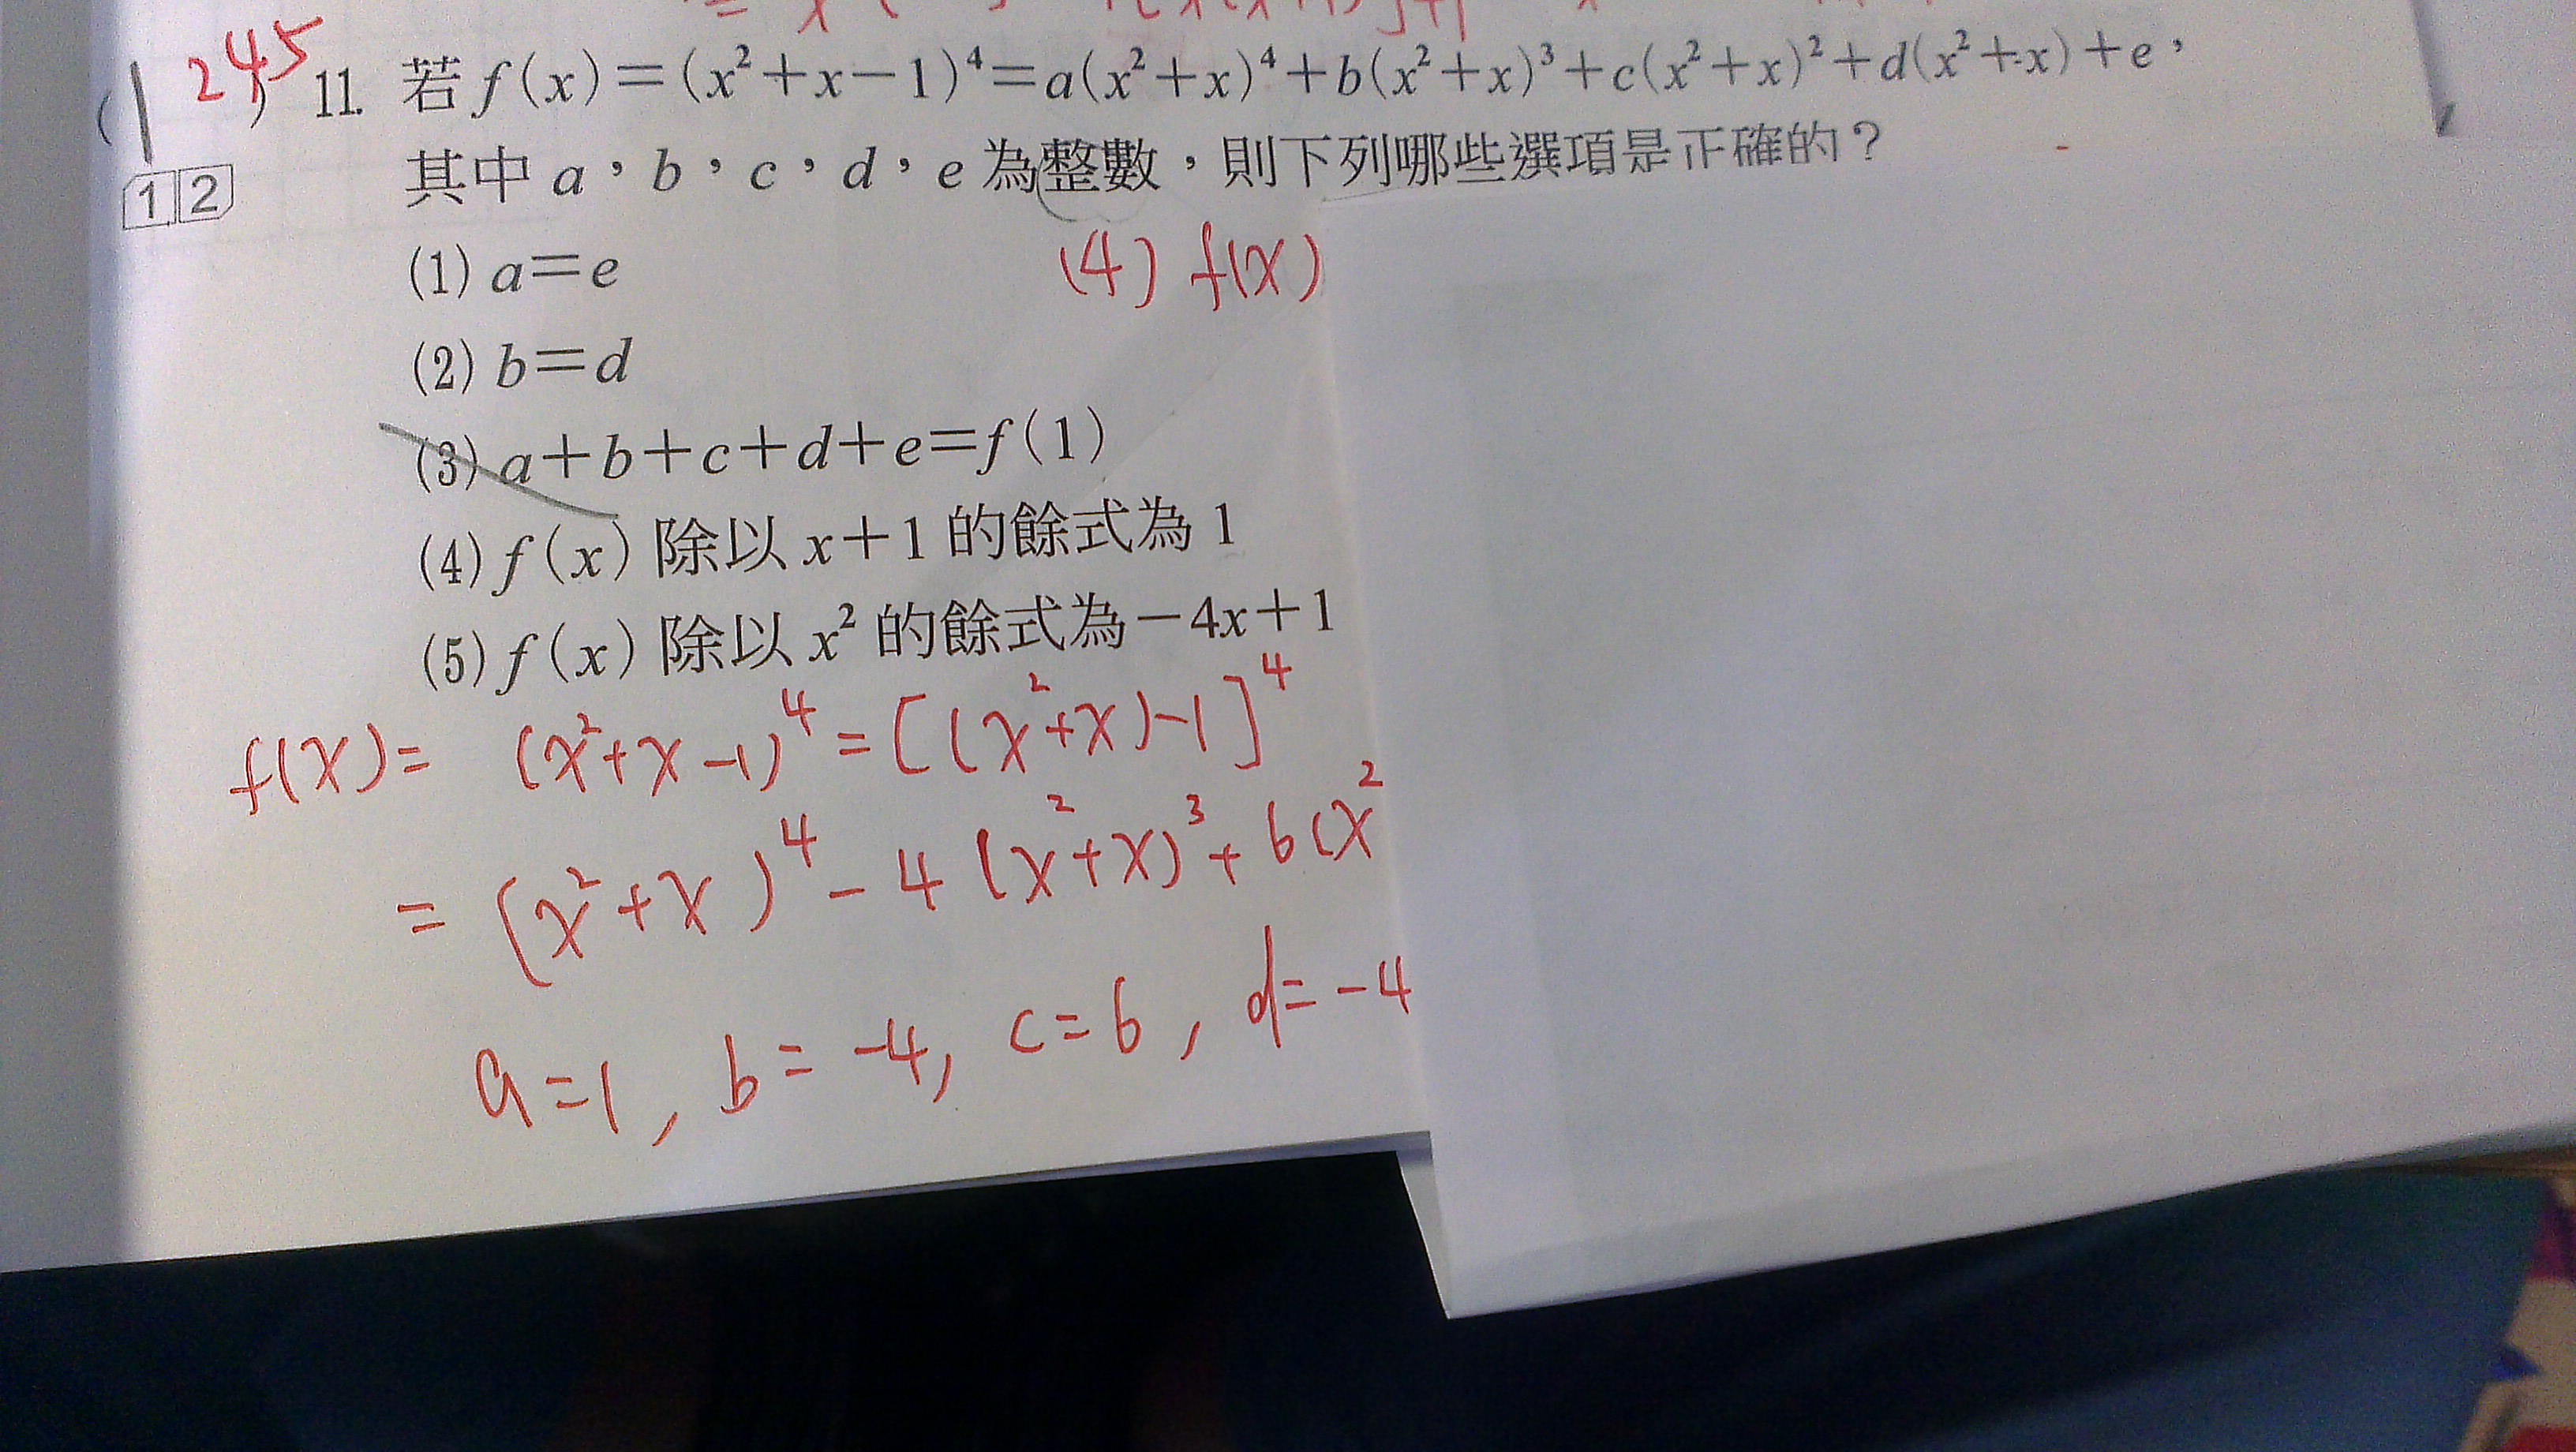 245
11. 若 f(x)=(x²+x−1)⁴=a(x²+x)⁴+b(x²+x)³+c(x²+x)²+d(x²+x)+e，
12 其中 a，b，c，d，e 為整數，則下列哪些選項是正確的？
(1) a=e (4) f(x)
(2) b=d
(3) a+b+c+d+e=f(1)
(4) f(x) 除以 x+1 的餘式為 1
(5) f(x) 除以 x² 的餘式為−4x+1
f(x)= (x²+x−1)⁴=[(x²+x)−1]⁴
= (x²+x)⁴−4(x²+x)³+6(x²
a=1, b=−4, c=6, d=−4